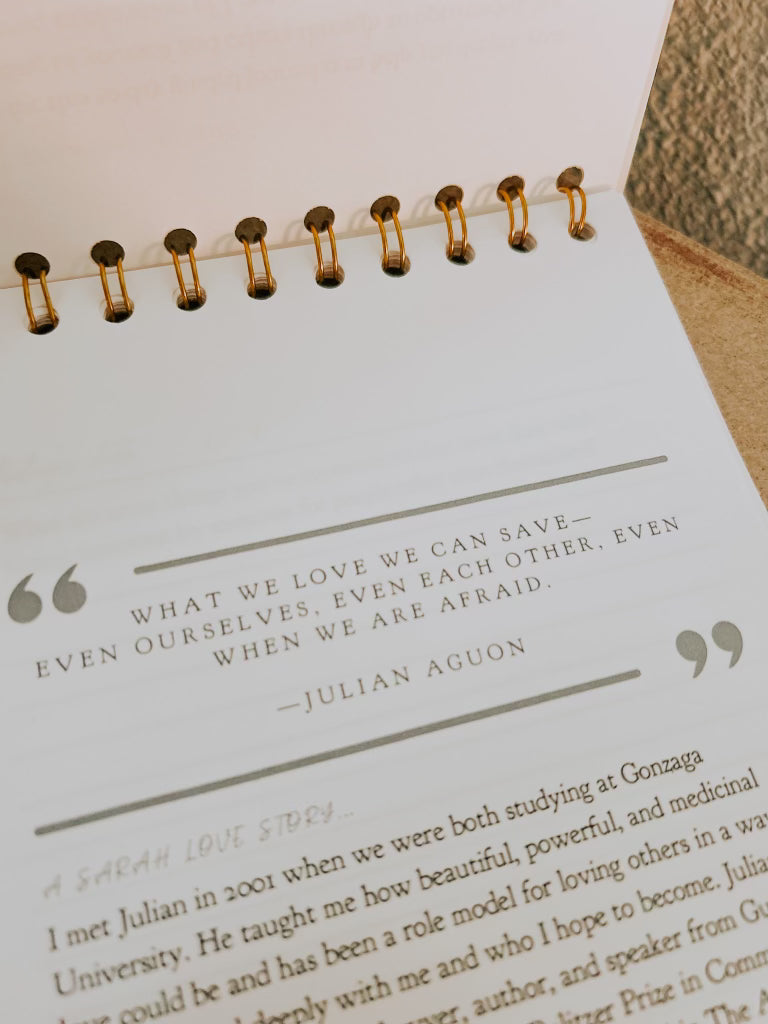 WHAT WE LOVE WE CAN SAVE—
EVEN OURSELVES, EVEN EACH OTHER, EVEN
WHEN WE ARE AFRAID.
—JULIAN AGUON
A SARAH LOVE STORY...
I met Julian in 2001 when we were both studying at Gonzaga
University. He taught me how beautiful, powerful, and medicinal
love could be and has been a role model for loving others in a way
deeply with me and who I hope to become.
author, and speaker from
Prize in
The